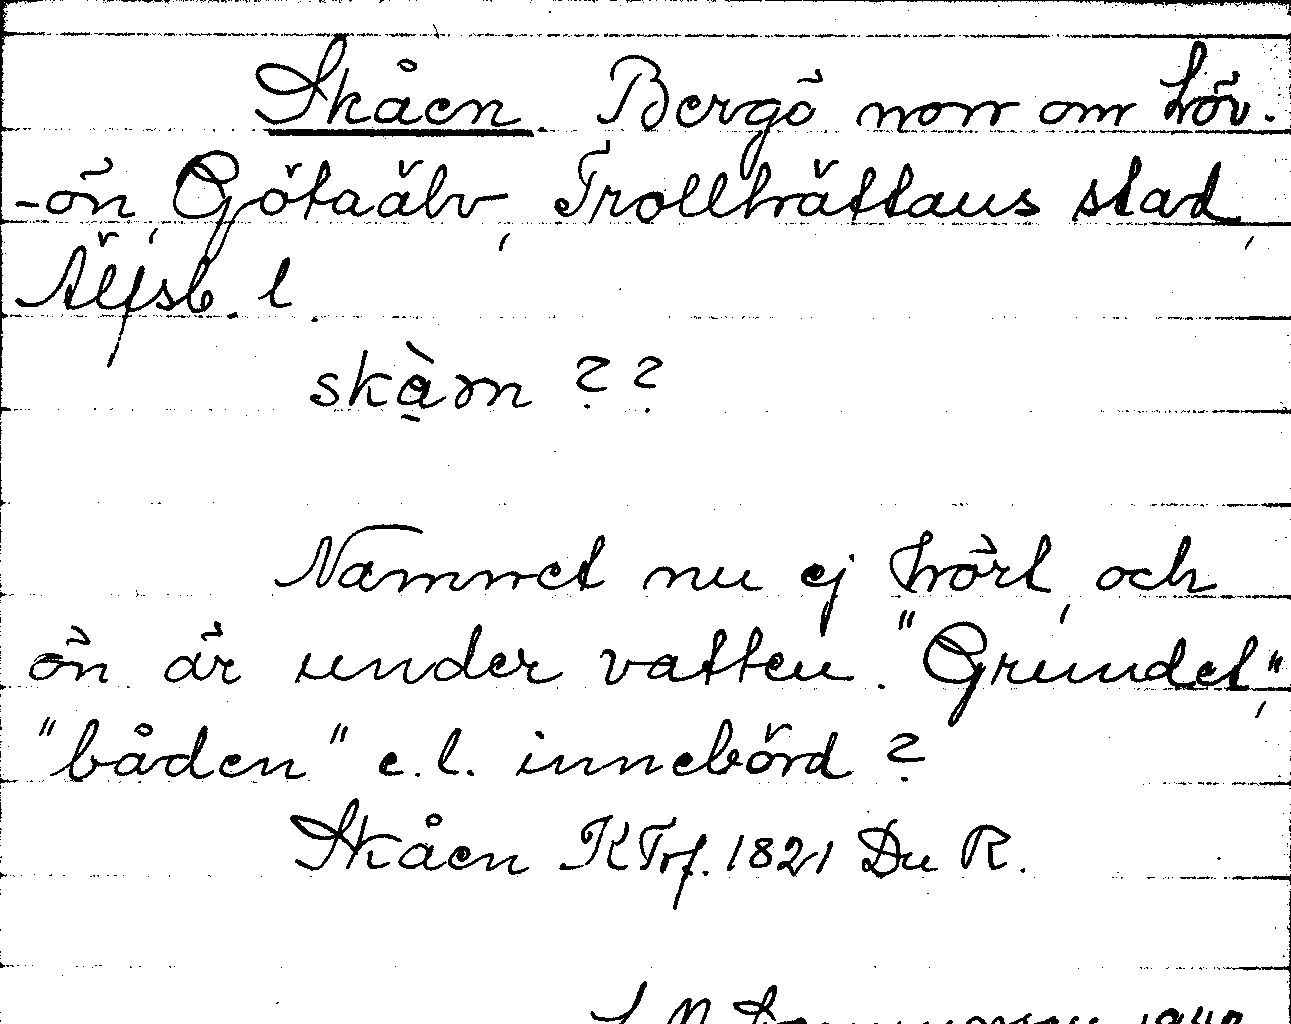 Skåen. Bergö norr om Höv-
-ön, Götaälv, Trollhättans stad,
Älfsb. l.
skạ̀m ??
Namnet nu ej hört, och
ön är under vatten. "Grundet",
"båden" e.l. innebörd ?
Skåen KTrf. 1821 Du R.